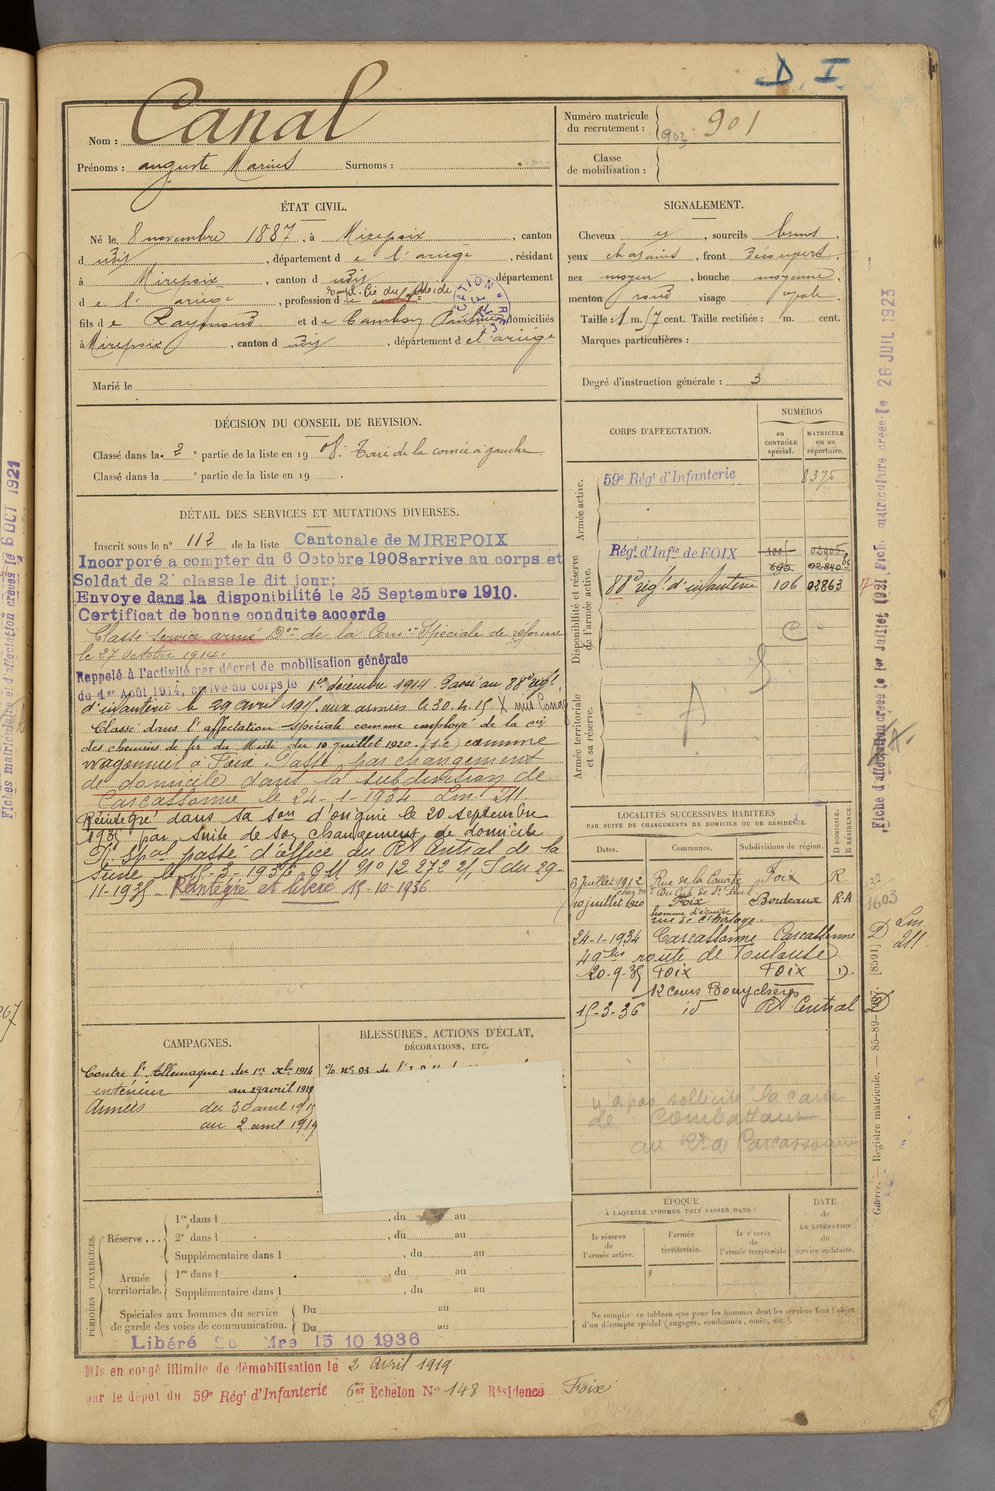 D. I.
Nom : Canal
Prénoms : auguste Marius Surnoms :
Numéro matricule du recrutement : 903 901
Classe de mobilisation :
ÉTAT CIVIL.
Né le 8 novembre 1887, à Mirepoix, canton
d udit, département de l'ariège, résidant
à Mirepoix, canton d udit département
de l'ariège, profession d
fils de Raymond et de domiciliés
à Mirepoix, canton d udit, département de l'ariège
Marié le
SIGNALEMENT.
Cheveux et, sourcils bruns
yeux chatains, front découvert
nez moyen, bouche moyenne
menton rond visage ovale
Taille : 1 m. 57 cent. Taille rectifiée : m. cent.
Marques particulières :
Degré d'instruction générale : 3
DÉCISION DU CONSEIL DE REVISION.
Classé dans la 2e partie de la liste en 19 08. Taie de la cornée à gauche
Classé dans la e partie de la liste en 19 .
DÉTAIL DES SERVICES ET MUTATIONS DIVERSES.
Inscrit sous le n° 112 de la liste Cantonale de MIREPOIX
Incorporé a compter du 6 Octobre 1908 arrive au corps et
Soldat de 2e classe le dit jour;
Envoye dans la disponibilité le 25 Septembre 1910.
Certificat de bonne conduite accorde
Classé service armé Don de la Com on Spéciale de réforme
le 27 octobre 1914.
Rappelé à l'activité par décret de mobilisation générale
du 1er Août 1914, arrivé au corps le 1er décembre 1914. Passé au 88e régt
d'infanterie le 29 avril 1915. aux armées le 30.4.15
Classé dans l'affectation spéciale comme employé de la cie
des chemins de fer du Midi du 10 juillet 1920. (s.e) comme
wagonnier à Foix. Passé par changement
de domicile dans la subdivision de
Carcassonne le 24-1-1934 Lm. 211.
Réintégré dans sa son d'origine le 20 septembre
1935 par suite de son changement de domicile
passé d'office au Rt Central de la
Seine le 15-3-1936 N° 12.272 du 29-
11-1935 Réintégré et libéré 15-10-1936
CORPS D'AFFECTATION.
NUMÉROS
au CONTRÔLE spécial.
MATRICULE ou au répertoire.
Armée active.
59e Régt d'Infanterie 8375
Disponibilité et réserve de l'armée active.
Régt d'Infie de FOIX
88e rég.t d'infanterie 106 02863
Armée territoriale et sa réserve.
LOCALITÉS SUCCESSIVES HABITÉES
PAR SUITE DE CHANGEMENTS DE DOMICILE OU DE RÉSIDENCE.
Dates. Communes. Subdivisions de région. D DOMICILE. R RÉSIDENCE.
6 juillet 1912 Rue de la Foix R
10 juillet 1920 Foix Bordeaux R.A
homme d'équipe
rue de l'Horloge.
24-1-1934 Carcassonne Carcassonne D
49 bis route de Toulouse
20-9-35 Foix Foix D.
12 Cours Bouychères
15-3-36 id Rt Central D
Lm 211
1603
CAMPAGNES.
Contre l'Allemagne du 1er Xbre 1914
intérieur au 29 avril 1915
Armées du 30 avril 1915
au 2 avril 1919
BLESSURES, ACTIONS D'ÉCLAT,
DÉCORATIONS, ETC.
n'a pas sollicité la carte
de combattant
au Rt de Carcassonne
PÉRIODES D'EXERCICES.
Réserve ...
1re dans l , du au
2e dans l , du au
Supplémentaire dans l , du au
Armée territoriale.
1re dans l , du au
Supplémentaire dans l , du au
Spéciales aux hommes du service de garde des voies de communication.
Du au
Du au
Libéré Mre 15 10 1936
ÉPOQUE
À LAQUELLE L'HOMME DOIT PASSER DANS :
la réserve de l'armée active.
l'armée territoriale.
la réserve de l'armée territoriale
DATE de LA LIBÉRATION du service militaire.
Ne remplir ce tableau que pour les hommes dont les services font l'objet
d'un décompte spécial (engagés, condamnés, omis, etc.).
Mis en congé illimité de démobilisation le 2 avril 1919
par le dépôt du 59e Régt d'Infanterie 6er Echelon No 148 Résidence Foix
Guerre. — Registre matricule. — 85-89-1907. [8591]
Fiche d'affectation créée le 1er Juillet 1921, Fich. matriculaire créée le 26 JUIL 1923
Fiches matriculaire et d'affectation créées le 6 OCT 1921